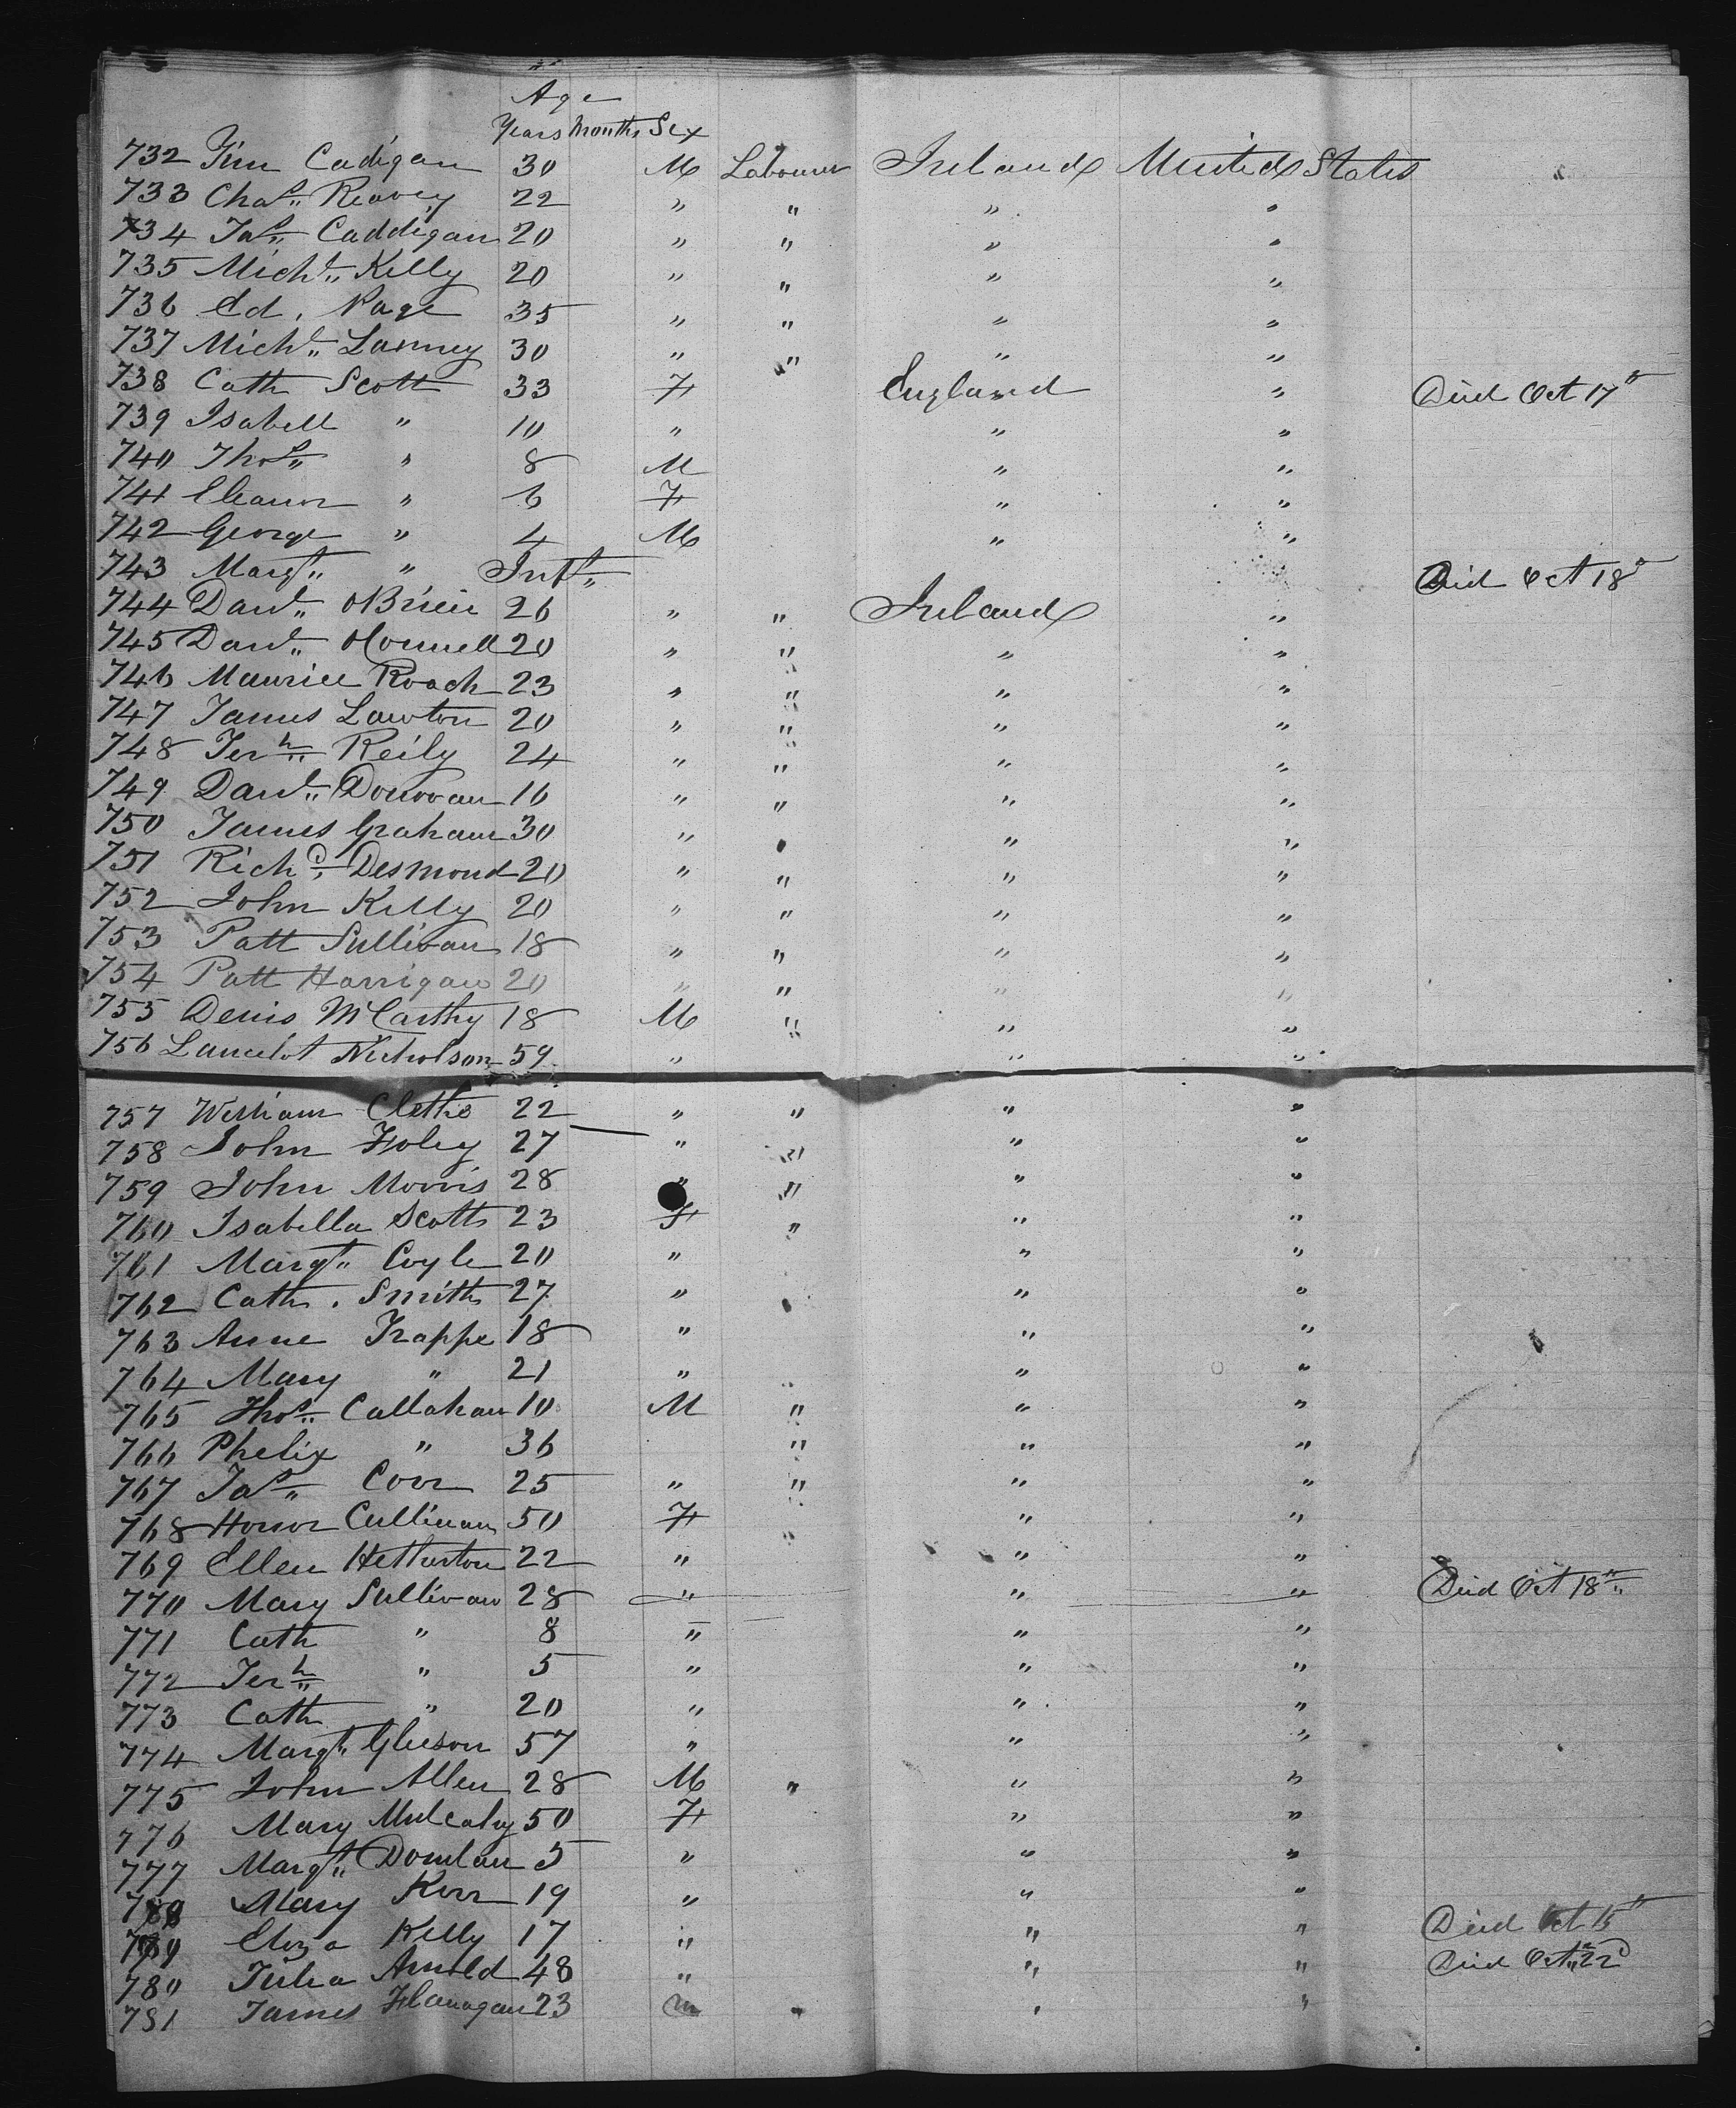 Age
Years Months Sex
732 Tim Cadigan 30 M Labourer Ireland United States
733 Chas. Reavey 22 " " " "
734 Jas. Caddigan 20 " " " "
735 Michl. Kelly 20 " " " "
736 Ed. Page 35 " " " "
737 Michl. Lanney 30 " " " "
738 Cath Scott 33 F England " Died Oct 17th
739 Isabell " 10 " " "
740 Thos. " 8 M " "
741 Eleanor " 6 F " "
742 George " 4 M " "
743 Margt. " Inft. Died Oct 18th
744 Danl. OBrien 26 " " Ireland "
745 Danl. OConnell 20 " " " "
746 Maurice Roach 23 " " " "
747 James Lawton 20 " " " "
748 Jerh. Reily 24 " " " "
749 Danl. Donovan 16 " " " "
750 James Graham 30 " " " "
751 Richd. Desmond 20 " " " "
752 John Kelly 20 " " " "
753 Patt Sullivan 18 " " " "
754 Patt Harrigan 20 " " " "
755 Denis McCarthy 18 M " " "
756 Lancelot Nicholson 59 " " "
757 William 22 " " " "
758 John Foley 27 " " " "
759 John Morris 28 " " " "
760 Isabella Scott 23 F " " "
761 Margt. Coyle 20 " " "
762 Cath. Smith 27 " " "
763 Anne Trappe 18 " " "
764 Mary " 21 " " "
765 Thos. Callahan 10 M " " "
766 Phelix " 36 " " "
767 Jas. Corr 25 " " " "
768 Honor Cullinan 50 F " "
769 Ellen Hetherton 22 " " "
770 Mary Sullivan 28 " " " Died Oct 18th
771 Cath " 8 " " "
772 Jerh. " 5 " " "
773 Cath " 20 " " "
774 Margt. Gleeson 57 " " "
775 John Allen 28 M " " "
776 Mary Mulcahy 50 F " "
777 Margt. Donlan 5 " " "
778 Mary Kerr 19 " " "
779 Eliza Kelly 17 " " " Died Oct 15th
780 Julia Arnold 48 " " " Died Oct. 22d
781 James Flanagan 23 m " " "